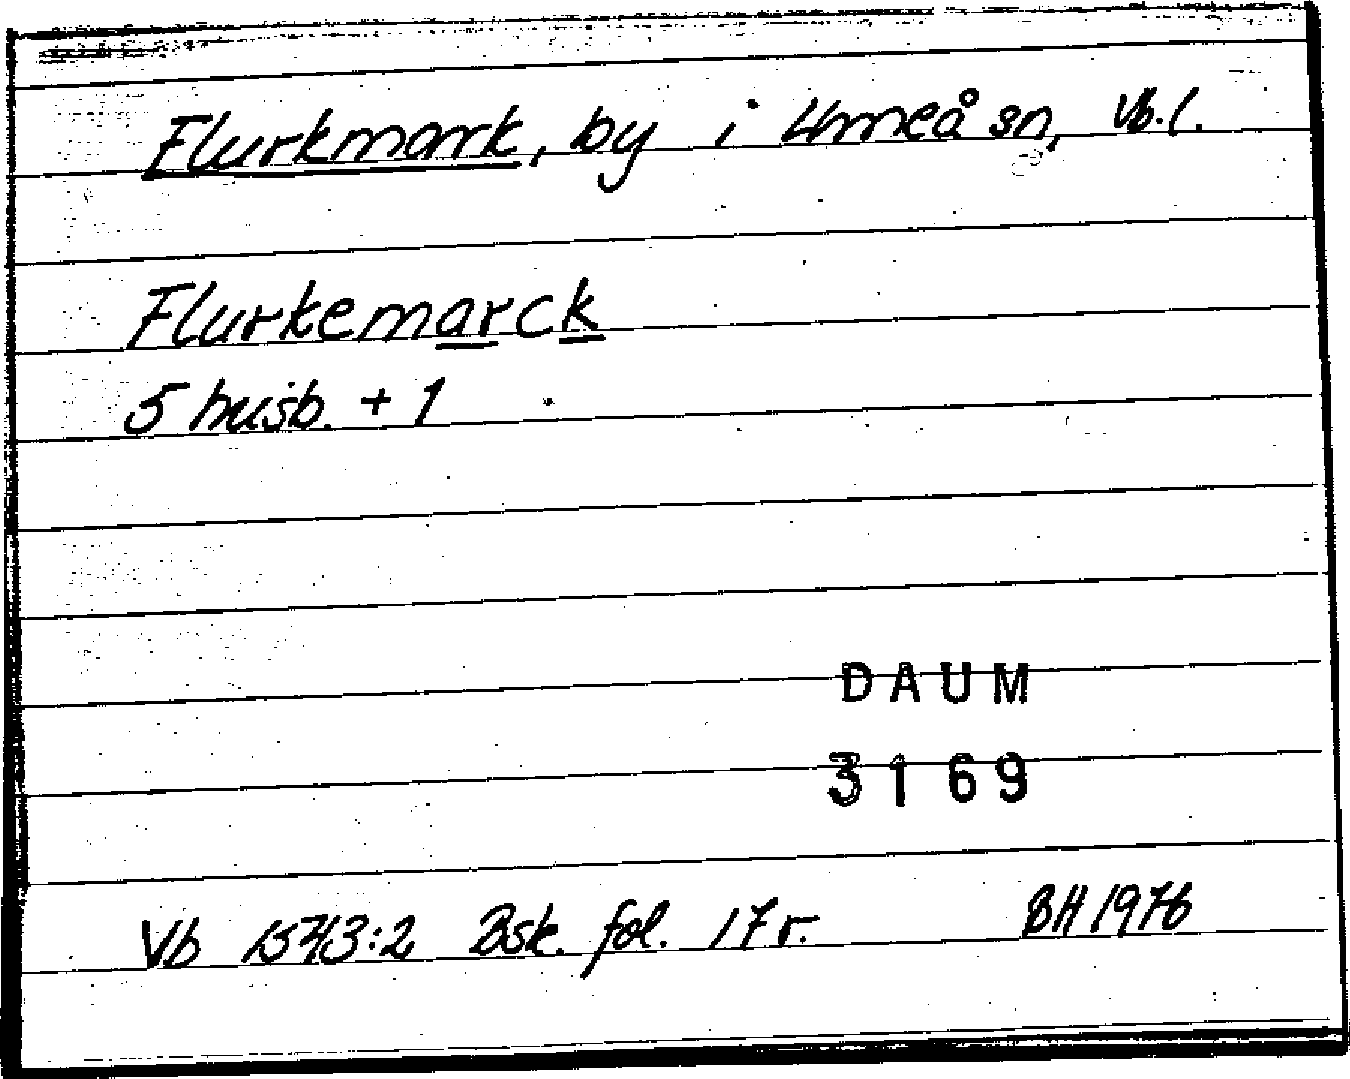 Flurkmark, by i Umeå sn, Vb.l.
Flurkemarck
5 husb. + 1
DAUM
3169
Vb 1543:2 Bsk. fol. 17 r. BH 1976